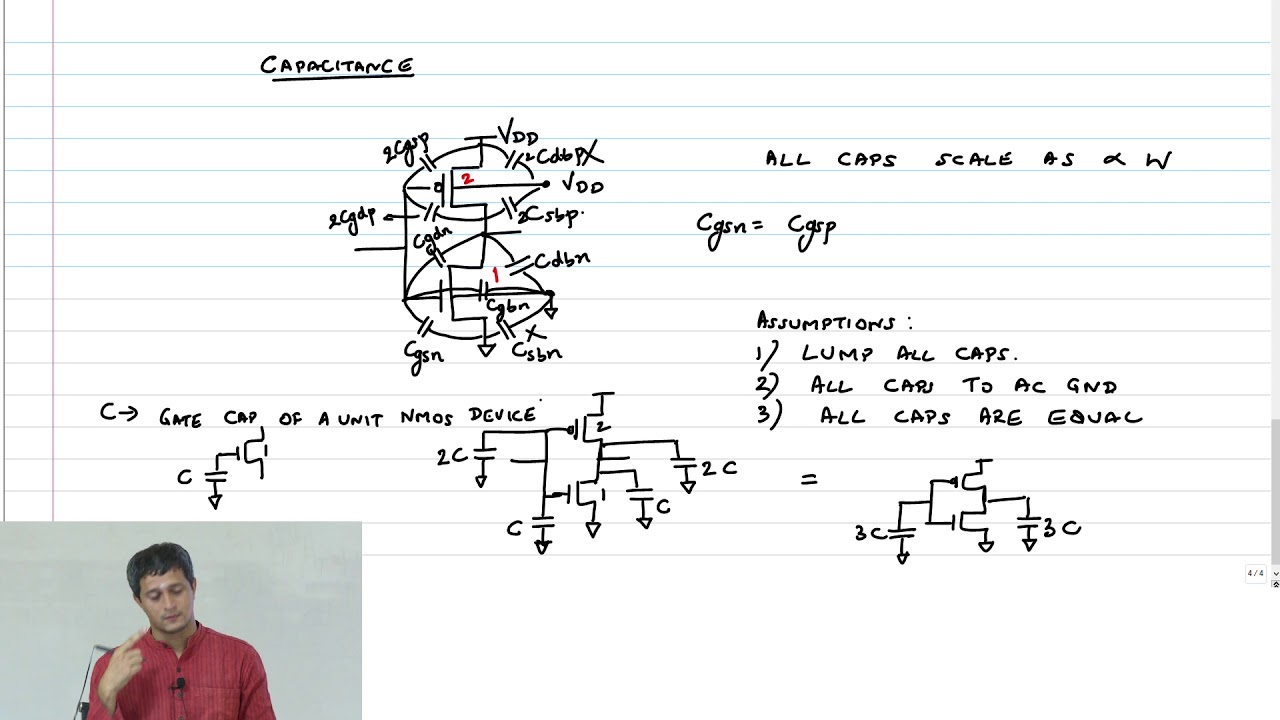 CAPACITANCE
2Cgsp
VDD
2Cdbp X
2
VDD
2Cgdp
2Csbp
Cgdn
1
Cdbn
Cgbn
Cgsn
X
Csbn
ALL CAPS SCALE AS ∝ W
Cgsn = Cgsp
ASSUMPTIONS :
1) LUMP ALL CAPS.
2) ALL CAPS TO AC GND
3) ALL CAPS ARE EQUAL
C → GATE CAP OF A UNIT NMOS DEVICE
C
1
2C
2
2C
1
C
C
=
3C
3C
4 / 4